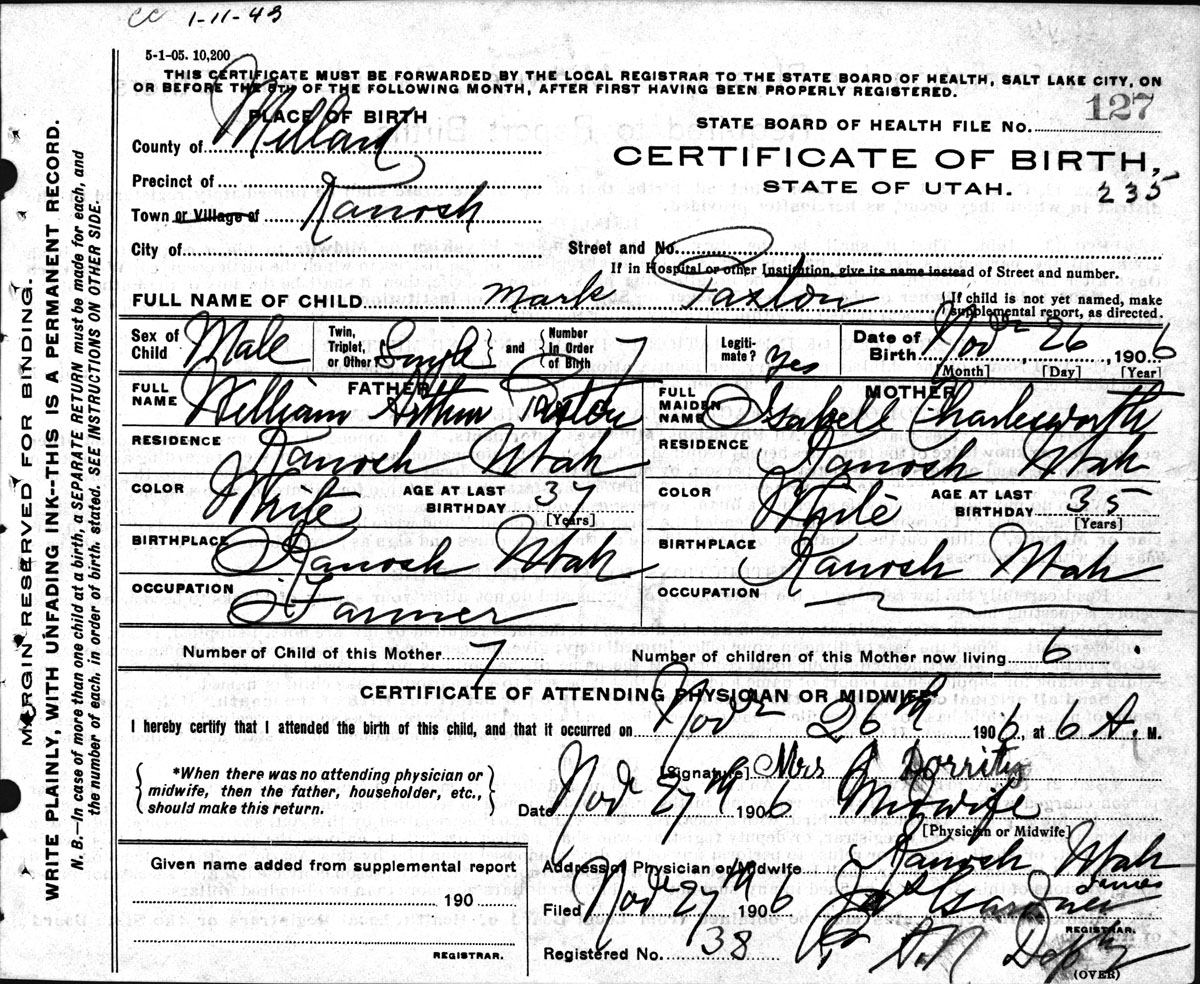 CC 1-11-43
5-1-05. 10,200
THIS CERTIFICATE MUST BE FORWARDED BY THE LOCAL REGISTRAR TO THE STATE BOARD OF HEALTH, SALT LAKE CITY, ON
OR BEFORE THE 5TH OF THE FOLLOWING MONTH, AFTER FIRST HAVING BEEN PROPERLY REGISTERED.
127
PLACE OF BIRTH
STATE BOARD OF HEALTH FILE No.
County of Millard
CERTIFICATE OF BIRTH,
Precinct of
STATE OF UTAH.
235
Town or Village of Kanosh
City of
Street and No.
If in Hospital or other Institution, give its name instead of Street and number.
FULL NAME OF CHILD Mark Paxton
If child is not yet named, make
supplemental report, as directed.
Sex of Child Male
Twin, Triplet, or Other Single and Number In Order of Birth 7
Legitimate? Yes
Date of Birth Nov 26, 1906
[Month] [Day] [Year]
FATHER
FULL NAME William Arthur Paxton
MOTHER
FULL MAIDEN NAME Isabell Charlesworth
RESIDENCE Kanosh Utah
RESIDENCE Kanosh Utah
COLOR White AGE AT LAST BIRTHDAY 37 [Years]
COLOR White AGE AT LAST BIRTHDAY 35 [Years]
BIRTHPLACE Kanosh Utah
BIRTHPLACE Kanosh Utah
OCCUPATION Farmer
OCCUPATION
Number of Child of this Mother 7 Number of children of this Mother now living 6
CERTIFICATE OF ATTENDING PHYSICIAN OR MIDWIFE*
I hereby certify that I attended the birth of this child, and that it occurred on Nov 26th 1906, at 6 A. M.
*When there was no attending physician or
midwife, then the father, householder, etc.,
should make this return.
[Signature] Mrs A Dorrity
Date Nov 27th 1906 Midwife
[Physician or Midwife]
Given name added from supplemental report
190
REGISTRAR.
Address of Physician or Midwife Kanosh Utah
Filed Nov 27th 1906 James Gardner
REGISTRAR.
Registered No. 38
(OVER)
MARGIN RESERVED FOR BINDING.
WRITE PLAINLY, WITH UNFADING INK--THIS IS A PERMANENT RECORD.
N. B.—In case of more than one child at a birth, a SEPARATE RETURN must be made for each, and
the number of each, in order of birth, stated. SEE INSTRUCTIONS ON OTHER SIDE.